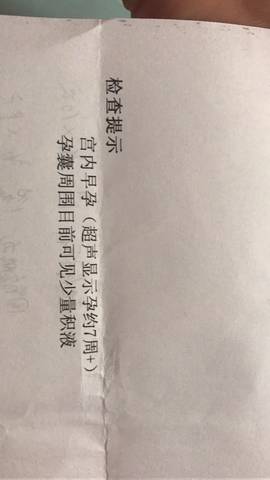 检查提示
宫内早孕（超声显示孕约7周+）
孕囊周围目前可见少量积液